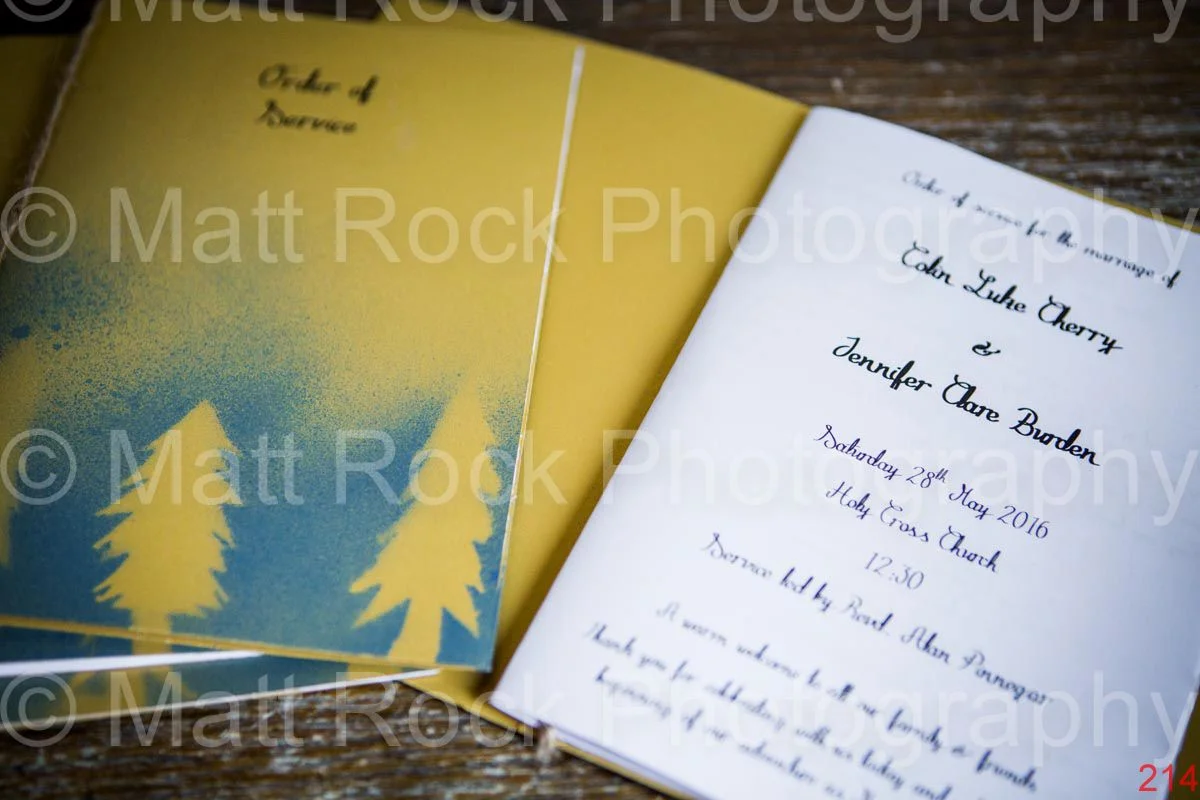 Order of
Service
Order of service for the marriage of
Colin Luke Cherry
&
Jennifer Clare Burden
Saturday 28th May 2016
Holy Cross Church
12:30
Service led by Revd. Alan Pennegar
A warm welcome to all our family & friends
Thank you for celebrating with us today and
beginning of our adventure as
© Matt Rock Photography
© Matt Rock Photography
© Matt Rock Photography
© Matt Rock Photography
214